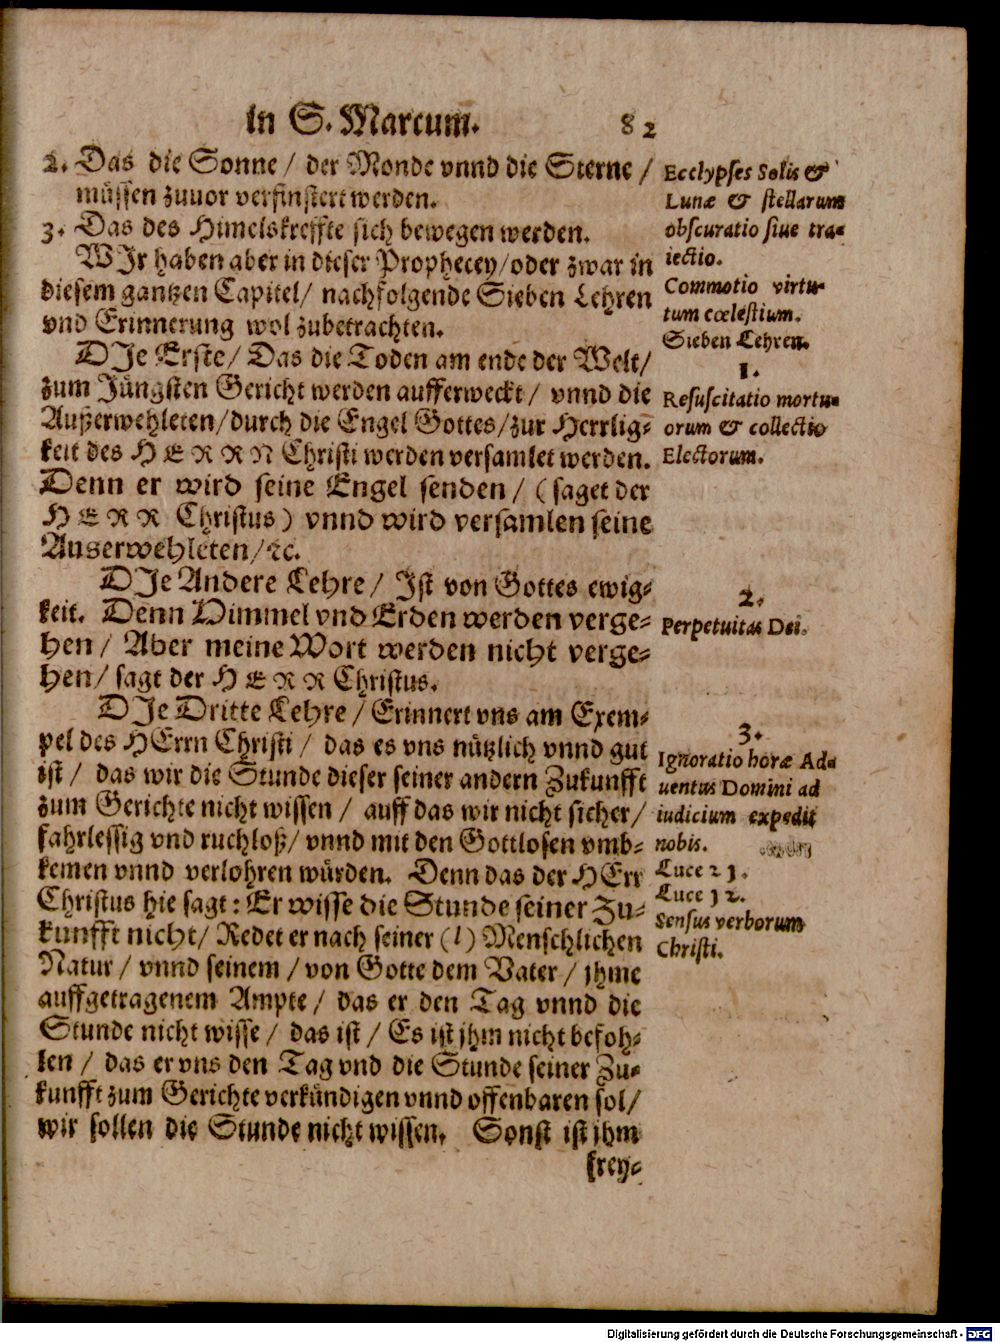 in S. Marcum. 82
2. Das die Sonne / der Monde vnnd die Sterne /
müssen zuuor verfinstert werden.
3. Das des Himelskreffte sich bewegen werden.
WIr haben aber in dieser Prophecey/oder zwar in
diesem gantzen Capitel/ nachfolgende Sieben Lehren
vnd Erinnerung wol zubetrachten.
DIe Erste/ Das die Toden am ende der Welt/
zum Jüngsten Gericht werden aufferweckt/ vnnd die
Außerwehleten/durch die Engel Gottes/zur Herrlig-
keit des HERRN Christi werden versamlet werden.
Denn er wird seine Engel senden/ (saget der
HERR Christus) vnnd wird versamlen seine
Auserwehleten/ꝛc.
DIe Andere Lehre/ Ist von Gottes ewig-
keit. Denn Himmel vnd Erden werden verge-
hen/ Aber meine Wort werden nicht verge-
hen/ sagt der HERR Christus.
DIe Dritte Lehre/ Erinnert vns am Exem-
pel des HErrn Christi/ das es vns nützlich vnnd gut
ist/ das wir die Stunde dieser seiner andern Zukunfft
zum Gerichte nicht wissen/ auff das wir nicht sicher/
fahrlessig vnd ruchloß/ vnnd mit den Gottlosen vmb-
kemen vnnd verlohren würden. Denn das der HErr
Christus hie sagt: Er wisse die Stunde seiner Zu-
kunfft nicht/ Redet er nach seiner (1) Menschlichen
Natur/ vnnd seinem/von Gotte dem Vater/ jhme
auffgetragenem Ampte/ das er den Tag vnnd die
Stunde nicht wisse/ das ist/ Es ist jhm nicht befoh-
len/ das er vns den Tag vnd die Stunde seiner Zu-
kunfft zum Gerichte verkündigen vnnd offenbaren sol/
wir sollen die Stunde nicht wissen. Sonst ist jhm
frey-
Ecclypses Solis &
Lunæ & stellarum
obscuratio siue tra-
iectio.
Commotio virtu-
tum cœlestium.
Sieben Lehren.
1.
Resuscitatio mortu-
orum & collectio
Electorum.
2.
Perpetuitas Dei.
3.
Ignoratio horæ Ad-
uentus Domini ad
iudicium expedit
nobis.
Luce 21.
Luce 12.
Sensus verborum
Christi.
Digitalisierung gefördert durch die Deutsche Forschungsgemeinschaft - DFG